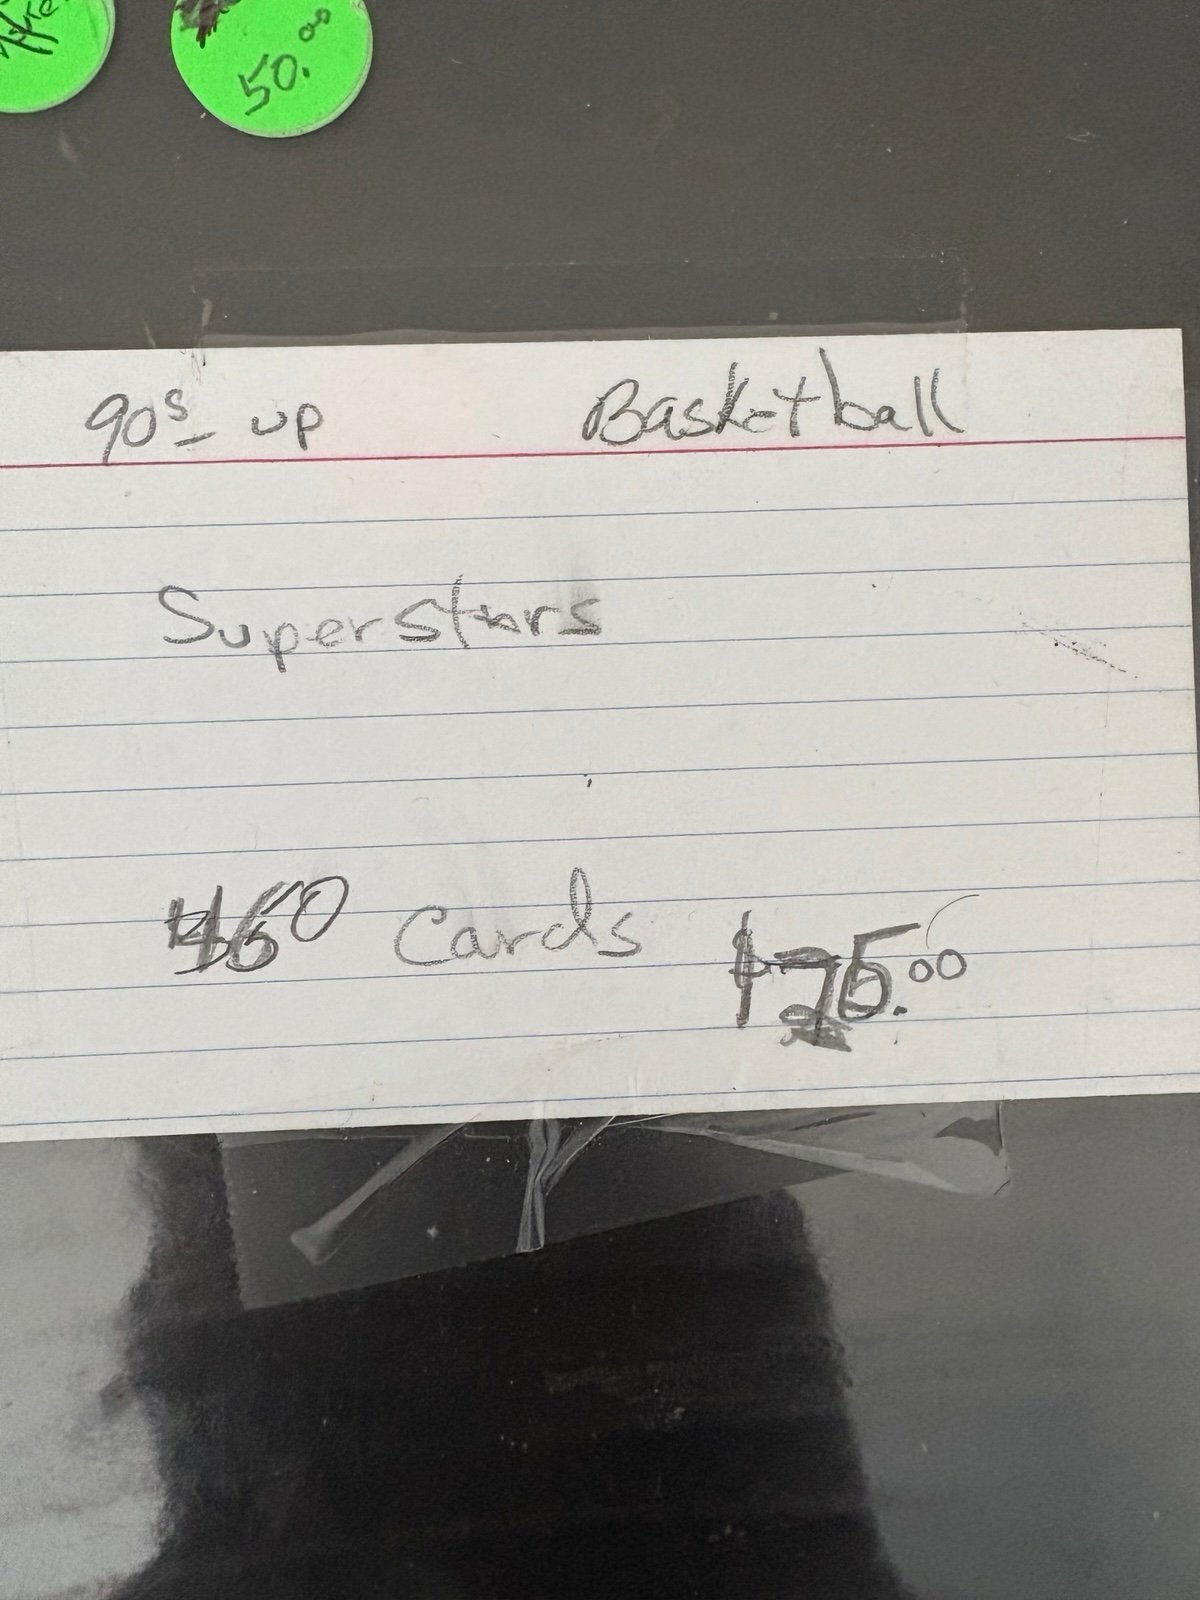 50.00
90s up Basketball
Superstars
Cards